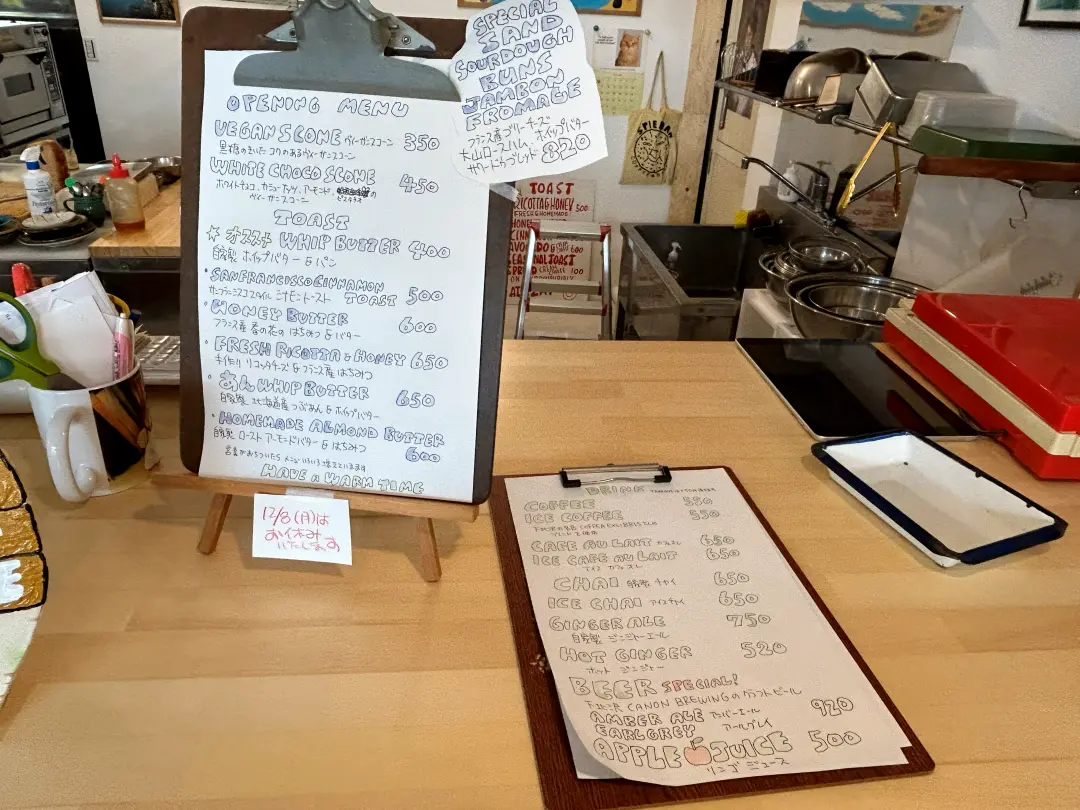 OPENING MENU
VEGAN SCONE ヴィーガンスコーン 350
黒糖のきいた コクのあるヴィーガンスコーン
WHITE CHOCO SCONE 450
ホワイトチョコ、カシューナッツ、アーモンド、
ピスタチオ
ヴィーガンスコーン
TOAST
☆オススメ WHIP BUTTER 400
自家製 ホイップバター & パン
・SANFRANCISCO CINNAMON
サンフランシスコスタイル シナモントースト TOAST 500
・HONEY BUTTER 600
フランス産 春の花の はちみつ & バター
・FRESH RICOTTA & HONEY 650
手作り リコッタチーズ & フランス産 はちみつ
・あん WHIP BUTTER 650
自家製 北海道産 つぶあん & ホイップバター
・HOMEMADE ALMOND BUTTER
自家製 ロースト アーモンドバター & はちみつ 600
営業がおちついたら メニューいろいろ増えていきます
HAVE A WARM TIME
SPECIAL
SAND
SOURDOUGH
BUNS
JAMBON
FROMAGE
フランス産ブリーチーズ
大山ロースハム ホイップバター
サワードゥブレッド 820
12/8(月)は
お休み
いたします
TOAST
RICOTTA & HONEY 500
FRESH & HOMEMADE
HONEY
SEASONAL TOAST
SPREAD 100
DRINK
COFFEE 550
ICE COFFEE 550
CAFE AU LAIT カフェオレ 650
ICE CAFE AU LAIT 650
アイス カフェオレ
CHAI 自家製 チャイ 650
ICE CHAI アイスチャイ 650
GINGER ALE 750
自家製 ジンジャーエール
HOT GINGER 520
ホット ジンジャー
BEER SPECIAL!
下北沢 CANON BREWINGのクラフトビール
AMBER ALE アンバーエール 920
EARLGREY アールグレイ
APPLE JUICE 500
リンゴ ジュース